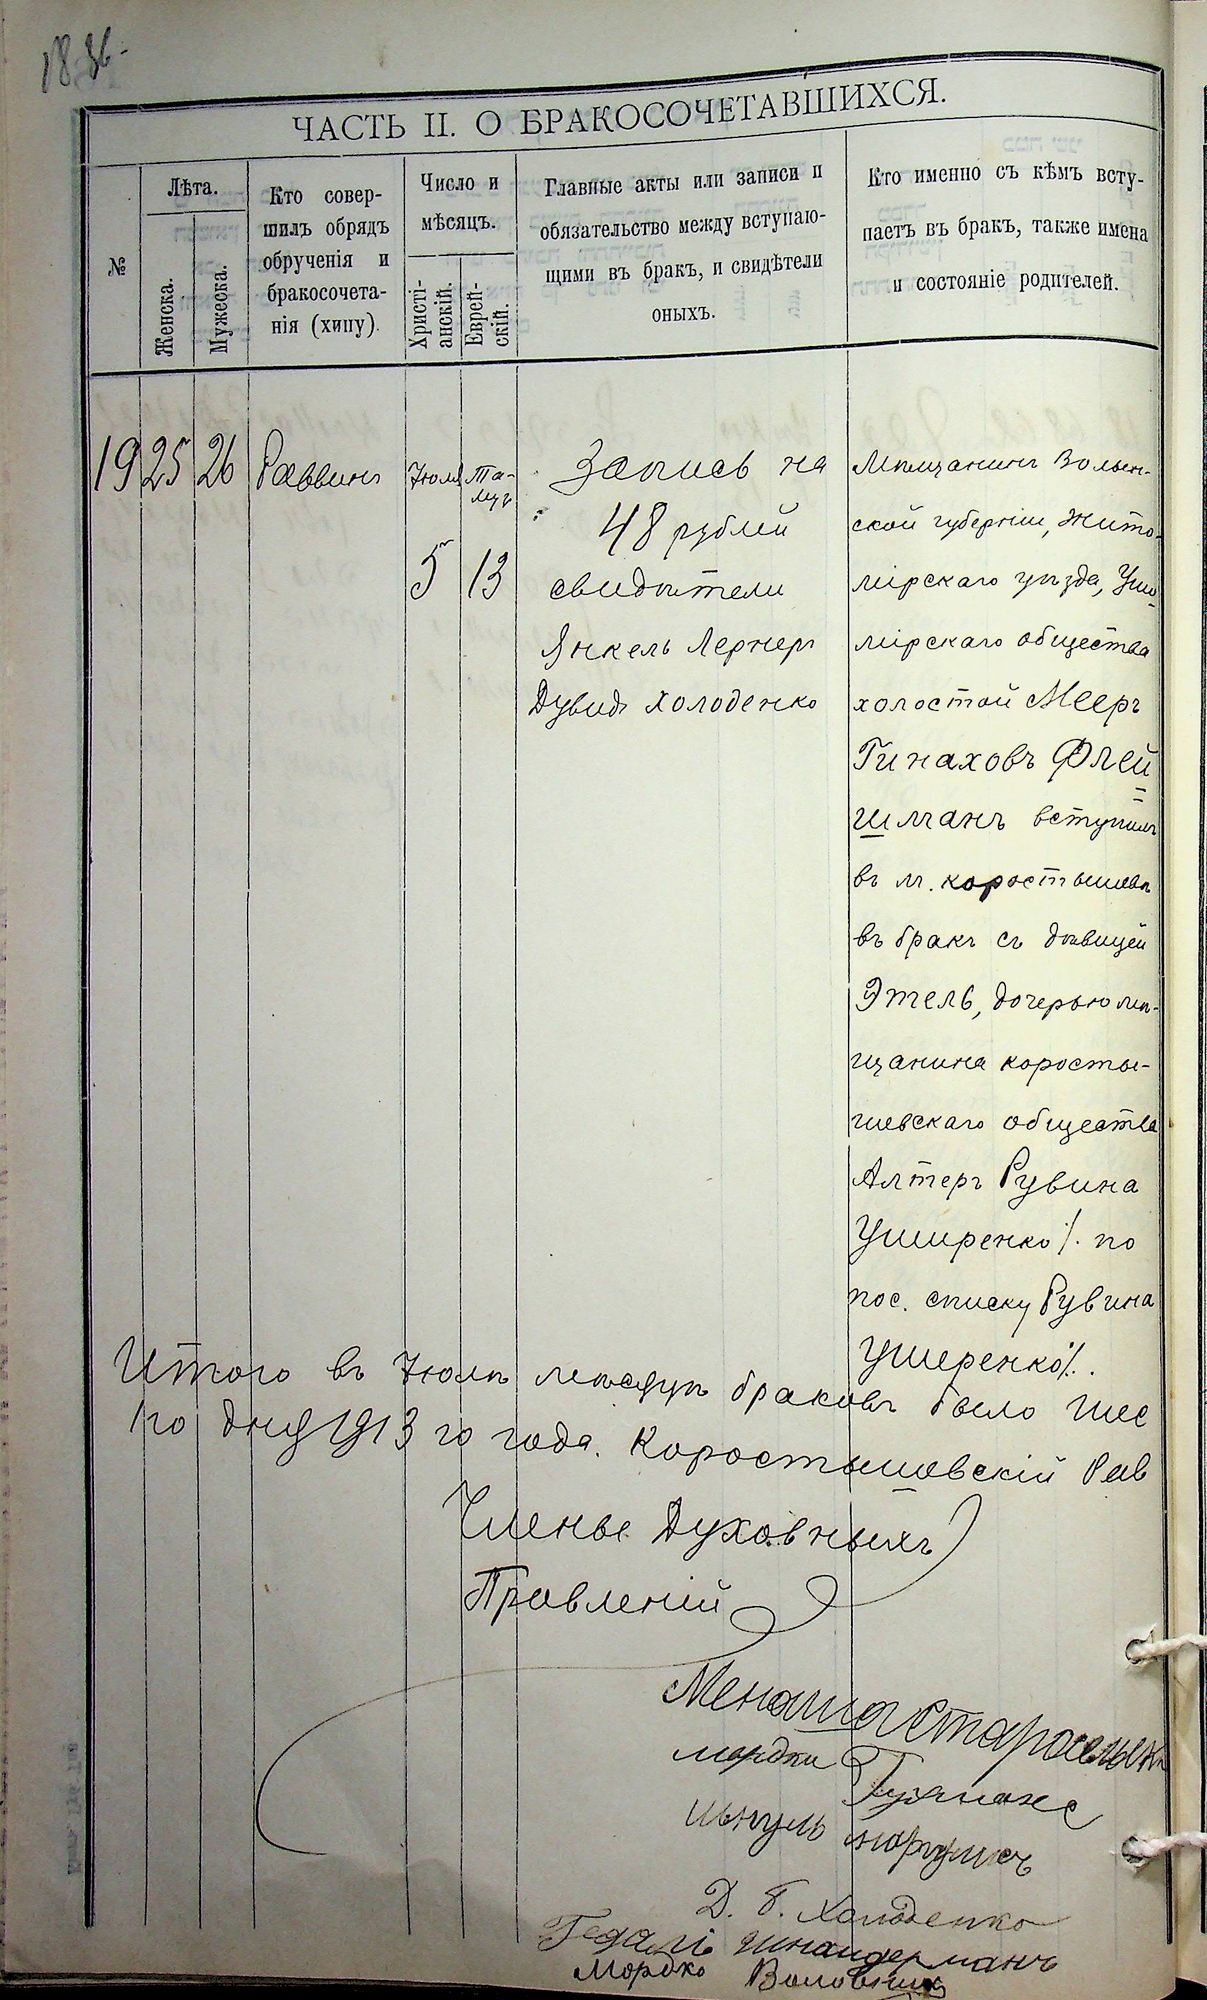 1836.
ЧАСТЬ II. О БРАКОСОЧЕТАВШИХСЯ.
№
Лѣта.
Женска.
Мужеска.
Кто совер-
шилъ обрядъ
обрученія и
бракосочета-
нія (хипу).
Число и
мѣсяцъ.
Христі-
анскій.
Еврей-
скій.
Главные акты или записи и
обязательство между вступаю-
щими въ бракъ, и свидѣтели
оныхъ.
Кто именно съ кѣмъ всту-
паетъ въ бракъ, также имена
и состояніе родителей.
19
25
26
Раввинъ
Іюля
5
Та-
музъ
13
Запись на
48 рублей
свидѣтели
Янкель Лернеръ
Дувидъ Холоденко
Мѣщанинъ Волын-
ской губерніи, Жито-
мірскаго уѣзда, Уши-
мірскаго общества
холостой Мееръ
Гинаховъ Флей-
шманъ вступилъ
въ м. Коростышевѣ
въ бракъ съ дѣвицей
Этель, дочерью мѣ-
щанина Коросты-
шевскаго общества
Алтеръ Рувина
Уширенко /. по
пос. списку Рувина
Ушеренко /.
Итого въ Іюлѣ мѣсяцѣ браковъ было шес
1го дня 1913 го года. Коростышевскій Рав
Члены Духовныхъ
Правленій
Менаша Старосельск
мордко Гутманс
Д. Г. Холоденко
Гедалі Шнайдерманъ
Мордко Воловник